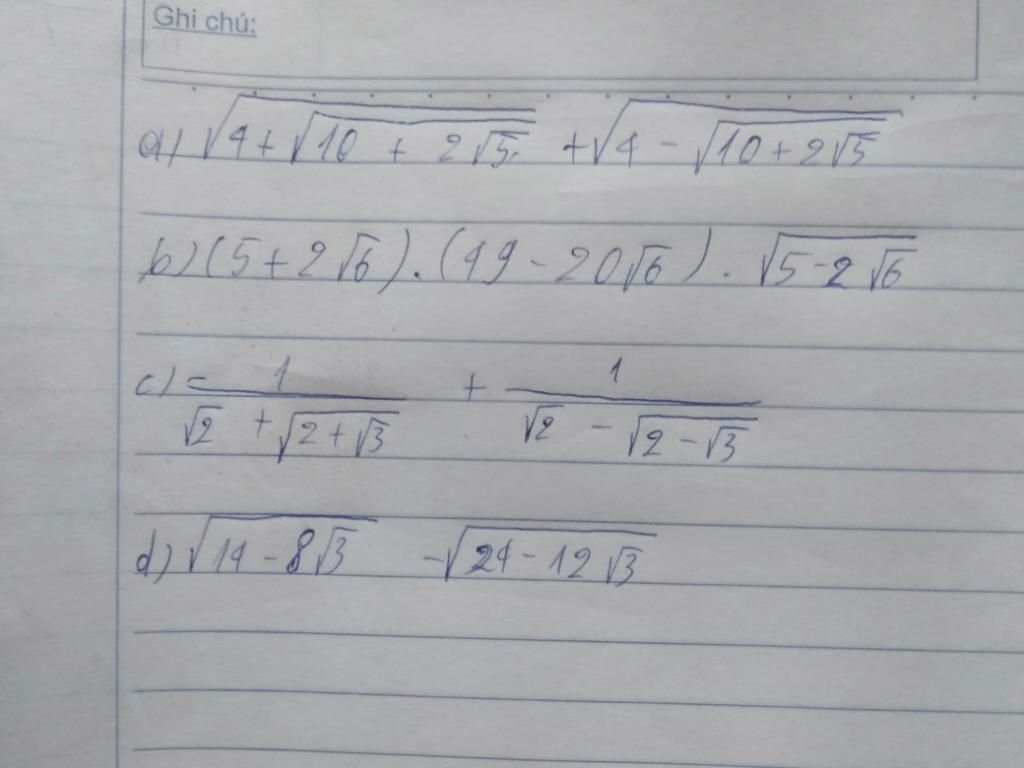 Ghi chú:
a) √(4 + √(10 + 2√5)) + √(4 - √(10 + 2√5))
b) (5 + 2√6) . (49 - 20√6) . √(5 - 2√6)
c) 1/(√2 + √(2 + √3)) + 1/(√2 - √(2 - √3))
d) √(14 - 8√3) - √(24 - 12√3)